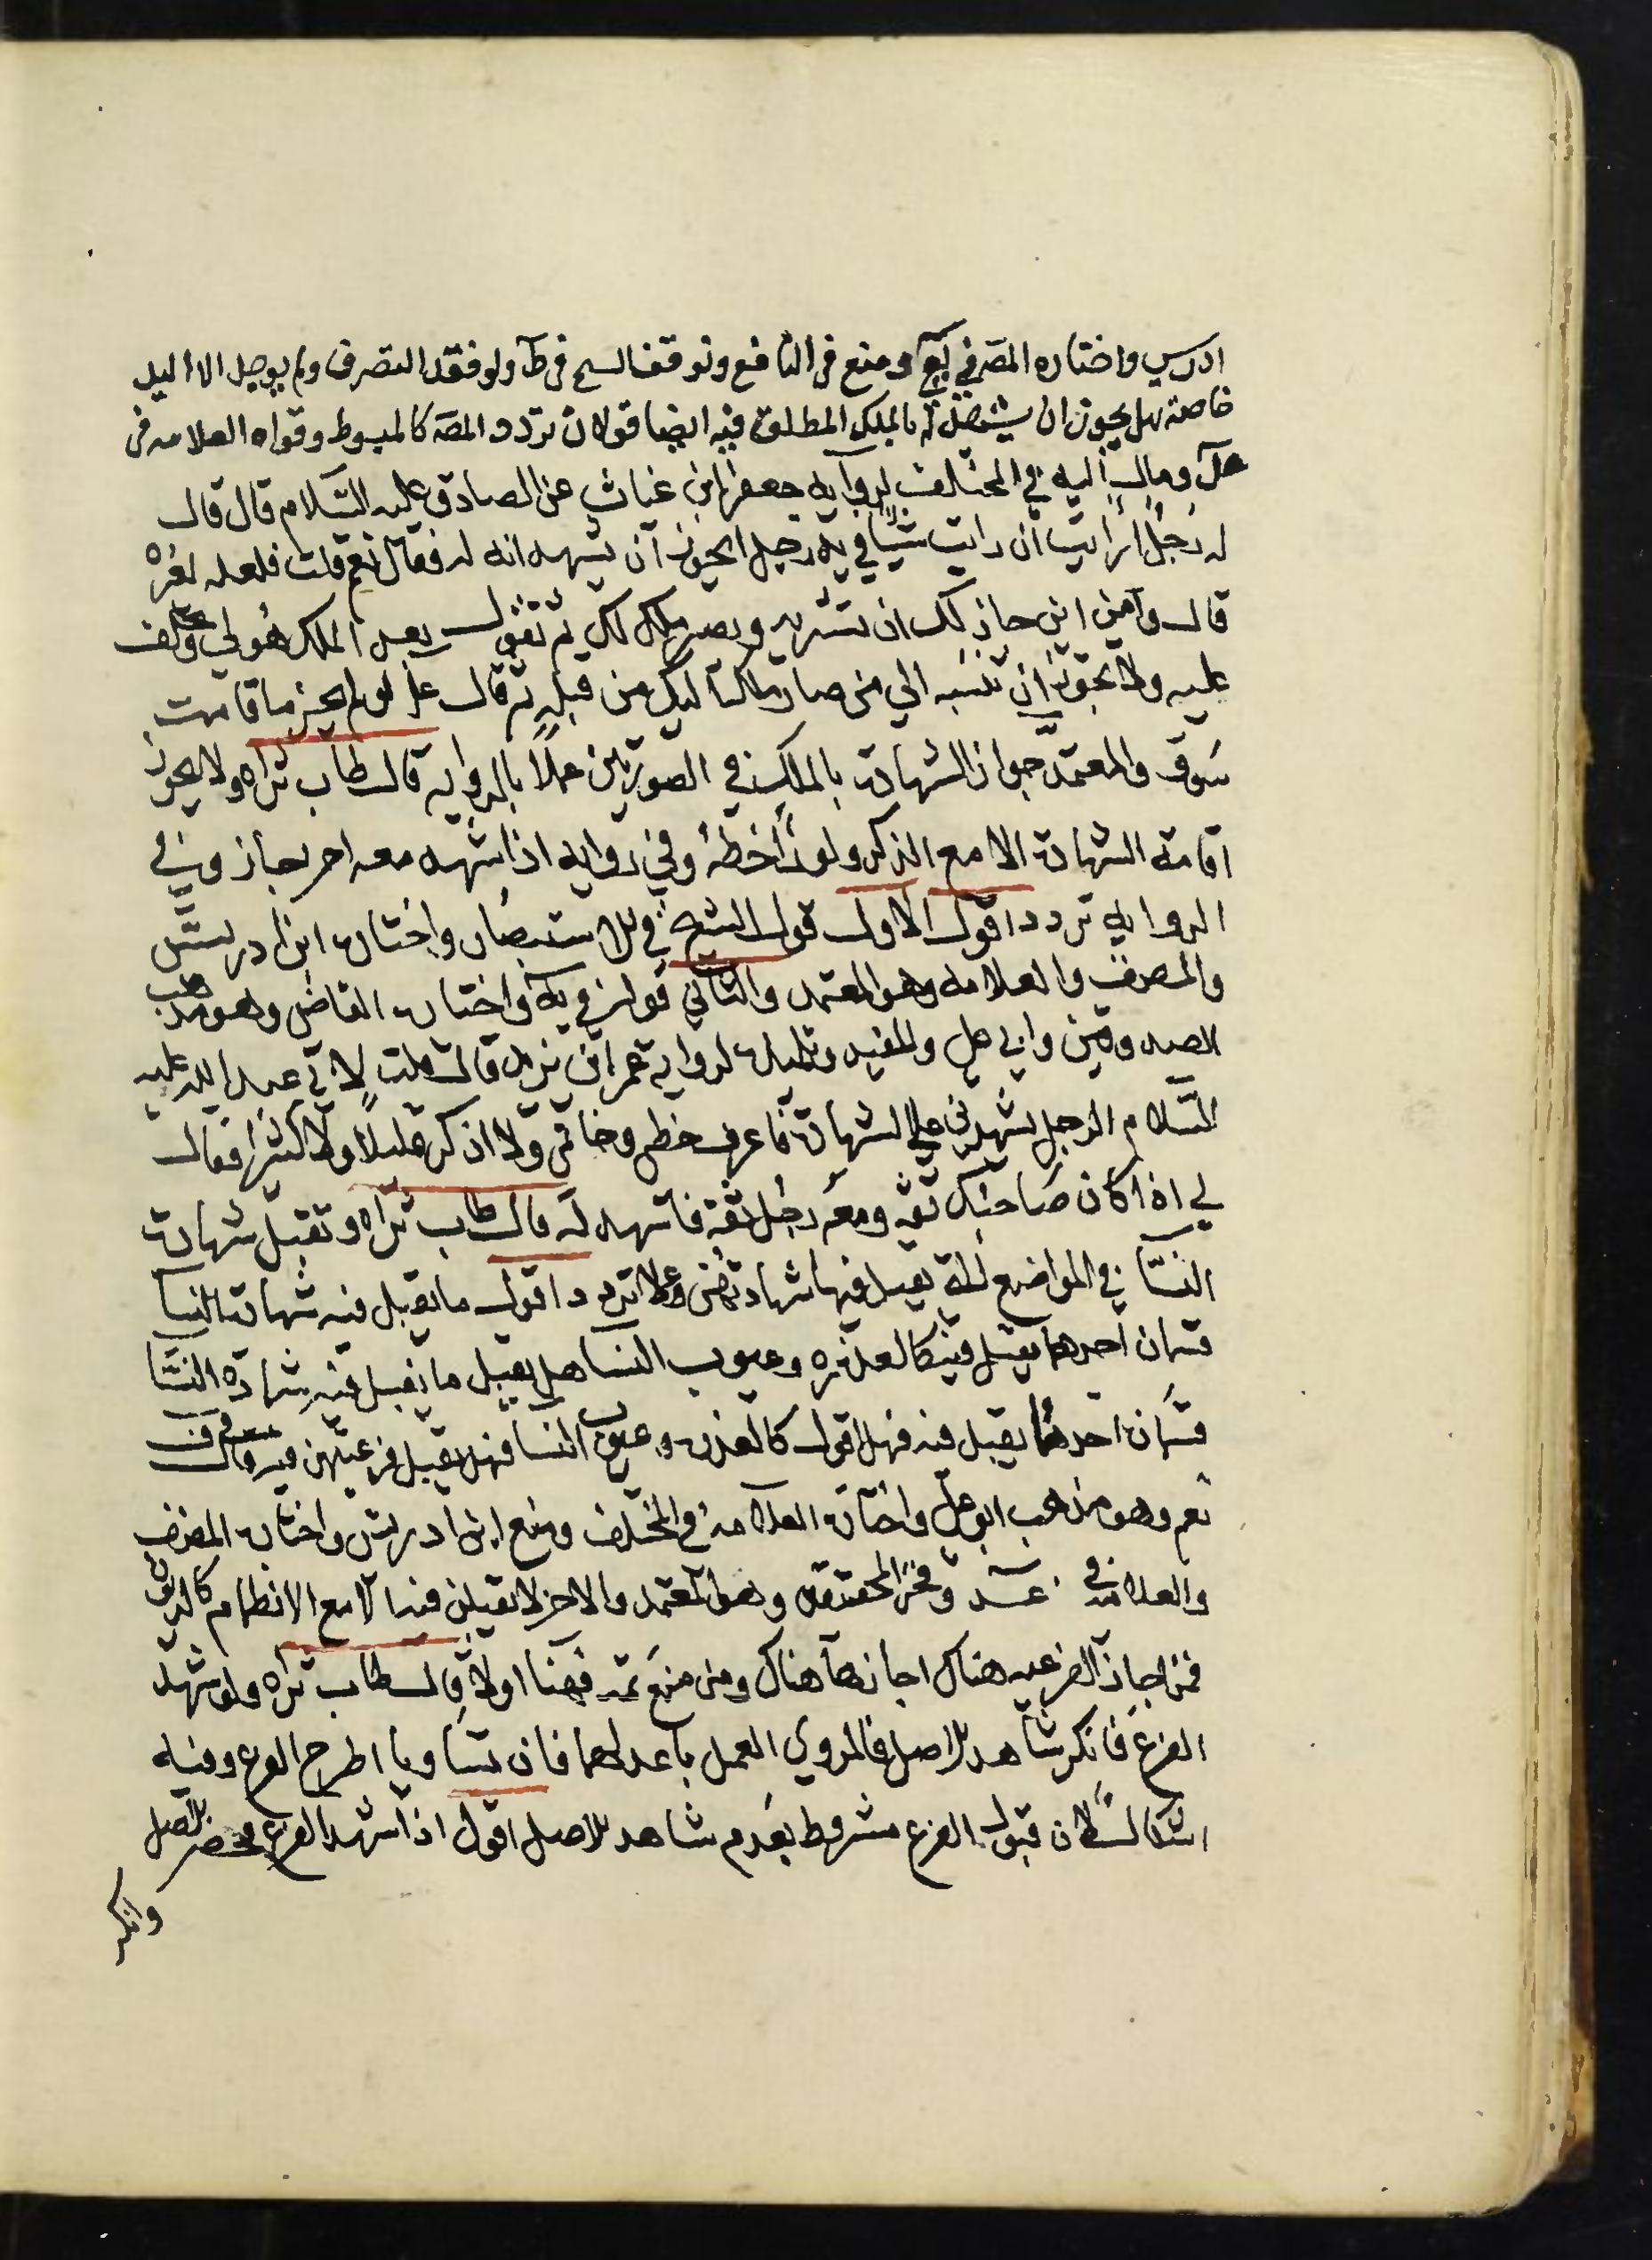 ادريس واختاره المصر في يع ومنع في النافع وتوقف الشيخ في ط ولو فقد التصرف ولم يوجد الا اليد
خاصة هل يجوز ان يشهد له بالملك المطلق فيه ايضا قولان تردد المصه كالمبسوط وقواه العلامه في
ومال اليه في المختلف لروايه جعفر ابن غياث عن الصادق عليه السلام قال قال
له رجل ارايت ان رايت شيا في يد رجل ايجوز ان تشهد انه له فقال نعم قلت فلعله لغره
قال ومن اين جاز لك ان تشتريه ويصير ملك لك ثم تقول بعد الملك هو لي وتحلف
عليه ولا يجوز ان تنسبه الي من صار ملكه اليك من قبله ثم قال علو لو لم يجز ما قامت
سوق والمعتمد جواز الشهادة بالملك في الصورتين عملا بالروايه قال طاب ثراه ولا يجوز
اقامة الشهادة الا مع الذكر ولو راخطه وفي روايه اذا شهد معه اخر جاز وفي
الروايه تردد اقول الاول قول الشيخ في للاستبصار واختاره ابن ادريس
والمصرف والعلامه وهو المعتمد والثاني قوله في يه واختاره القاضي وهو مذهب
الصدوقين وابي علي والمفيد وتلميذه لروايه عمر ابن يزيد قال قلت لابي عبد الله عليه
السلام الرجل يشهدني علي الشهادة فاعرف خطي وخاتمي ولا اذكر قليلا ولا كثيرا فقال
لي اذا كان صاحبك ثقه ومعه رجل ثقة فاشهد له قال طاب ثراه وتقبل شهادت
النسا في المواضع للتي يقبل فيها شهادتهن وعلا تردد اقول ما يقبل فيه شهادة النسا
قسمان احدهما يقبل فيه كالعذره وعيوب النسا هل يقبل ما يقبل فيه شهادة النسا
قسمان احدهما يقبل فيه فهل اقول كالعذره وعيوب النسا فهل يقبل فرعيتهن فيه قال في ف
نعم وهو مذهب ابو علي واختاره العلامه في المختلف ومنع ابن ادريس واختاره المصرف
والعلامه في عد وفخر المحققه وهو المعتمد والاخر لا يقبلن فيه الا مع الانظمام كالديون
فمن اجاز الفرعيه هناك اجازها هناك ومن منع ثمه فهنا اولا قال طاب ثراه ولو شهد
الفرع فانكر شاهد للاصل فالمروي العمل باعدلهما فان تساويا اطرح الفرع وفيه
اشكال لان قبول الفرع مشروط بعدم شاهد للاصل اقول اذا شهد الفرع محضر للاصل
وانكر